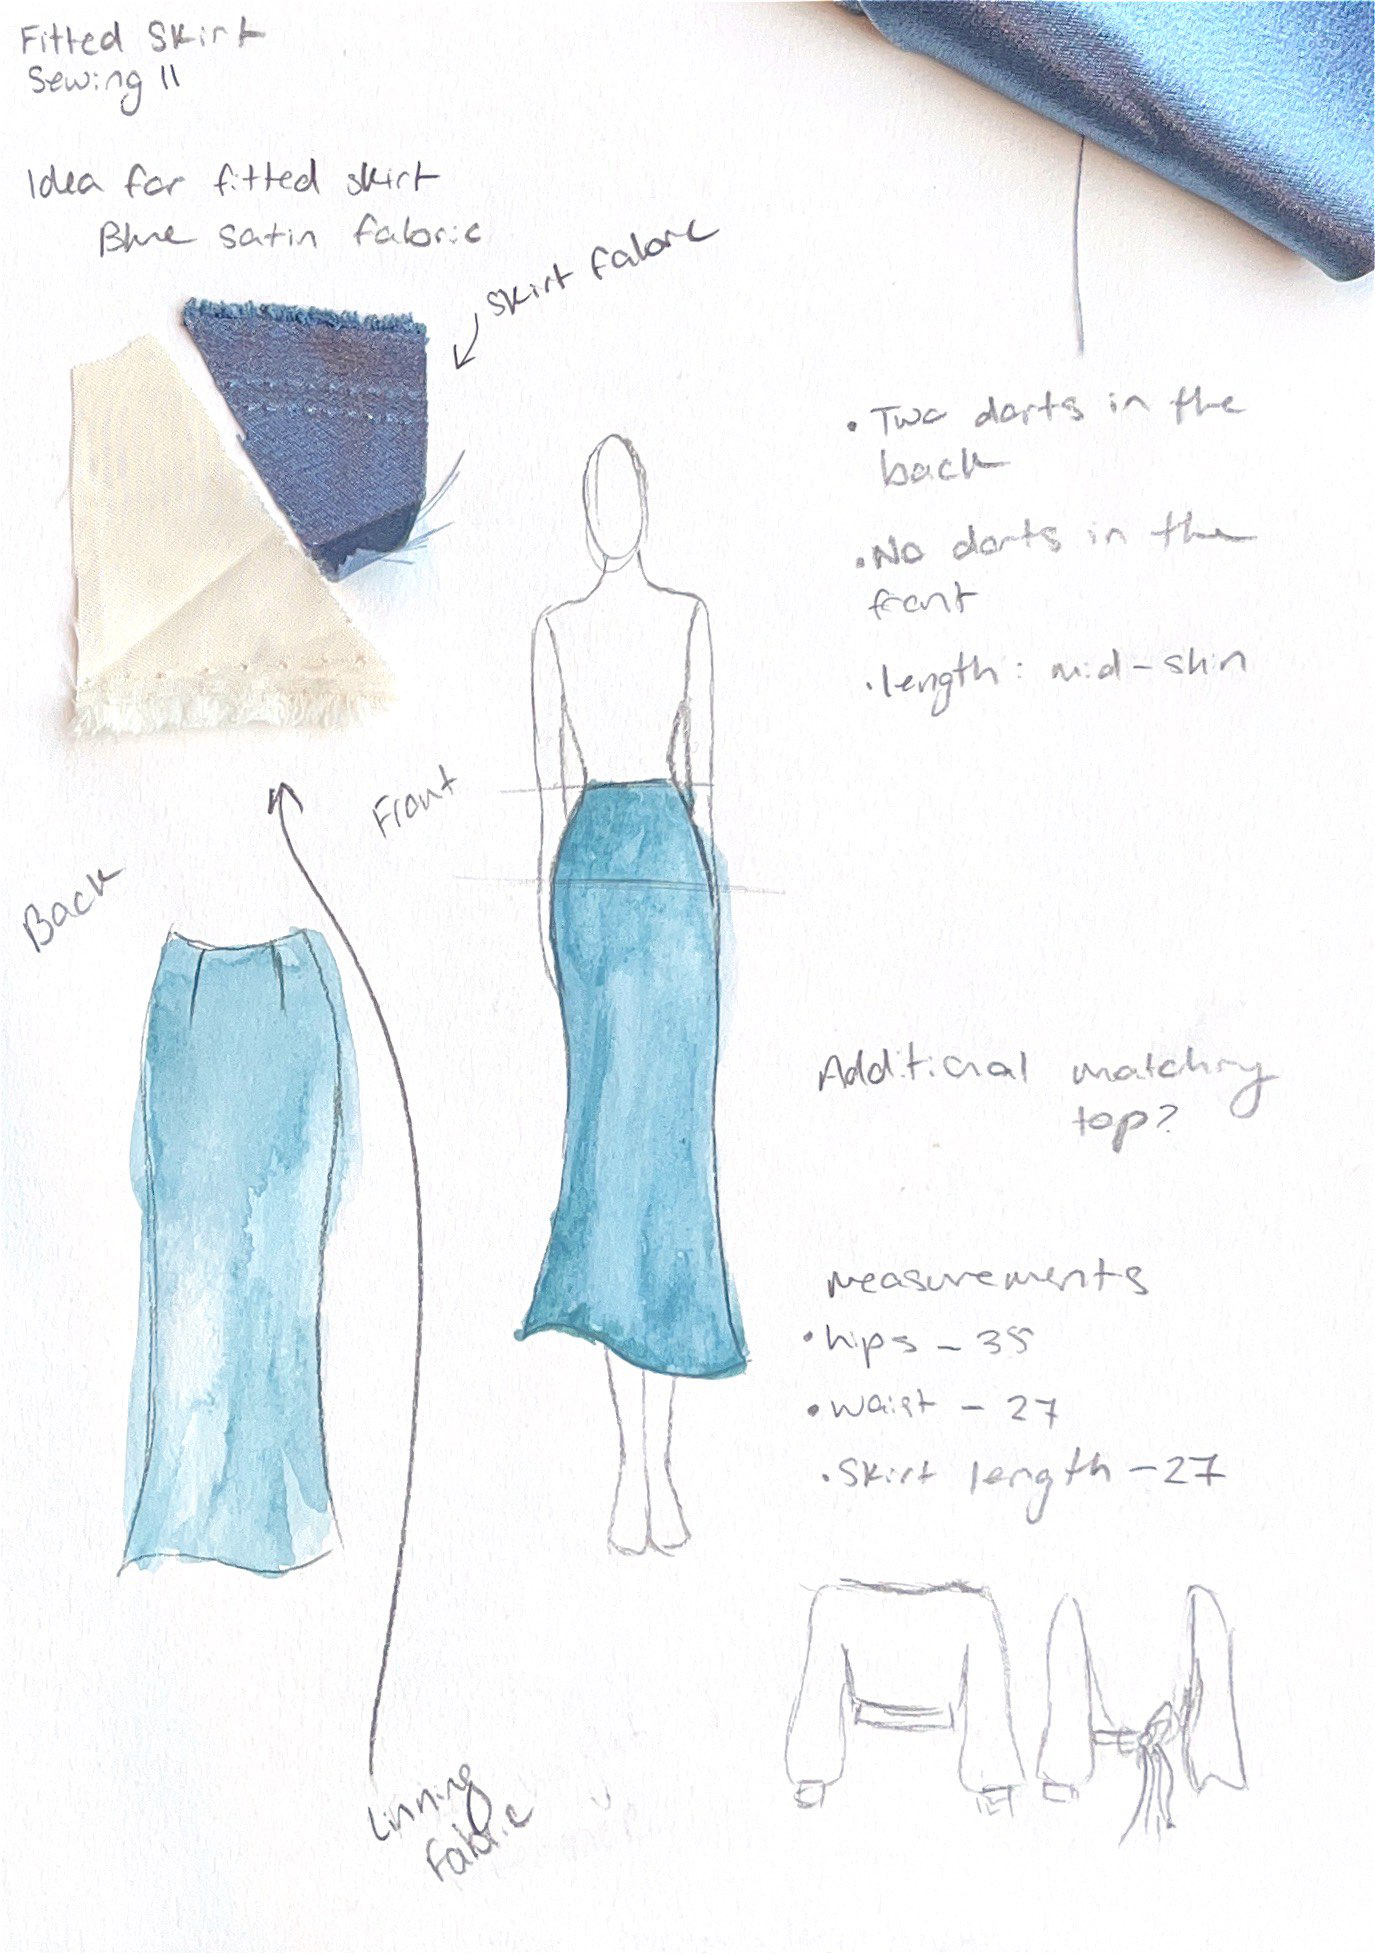 Fitted Skirt
Sewing II
Idea for fitted skirt
Blue satin fabric
Skirt fabric
• Two darts in the
back
• No darts in the
front
• length: mid-shin
Front
Back
Additional matching
top?
Measurements
• hips - 35
• waist - 27
• Skirt length - 27
Linning
Fabric